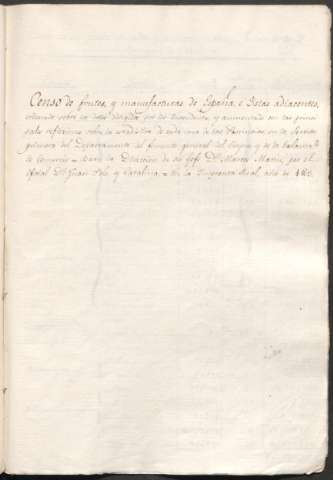 Censo de frutos, y manufacturas de España, é Islas adiacentes,
ordenado sobre los datos dirigidos por los Yntendentes, y aumentado con las princi
pales reflexiones sobre la estadística de cada una de las Provincias, en la Seccion
primera del Departamento del Fomento general del Reyno, y de la balanza
de Comercio = baxo la Direccion de su Gefe Dn Marcos Marin, por el
oficial Dn Juan Polo y Catalina. = En la Ymprenta Real, año de